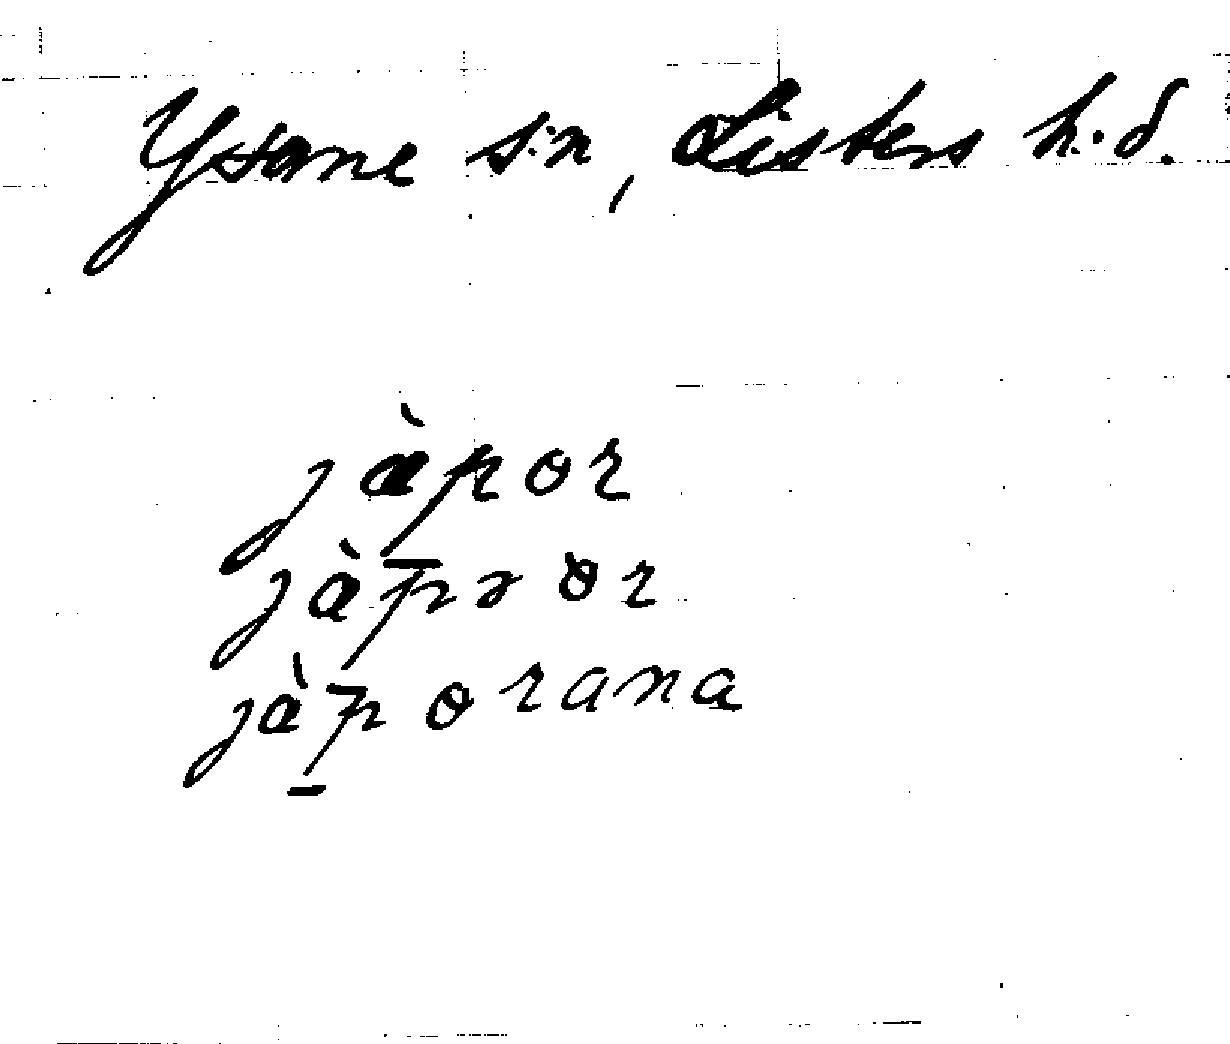 Ysane s:n, Listers h.d.
jàpor
jàpɘor
jàporana